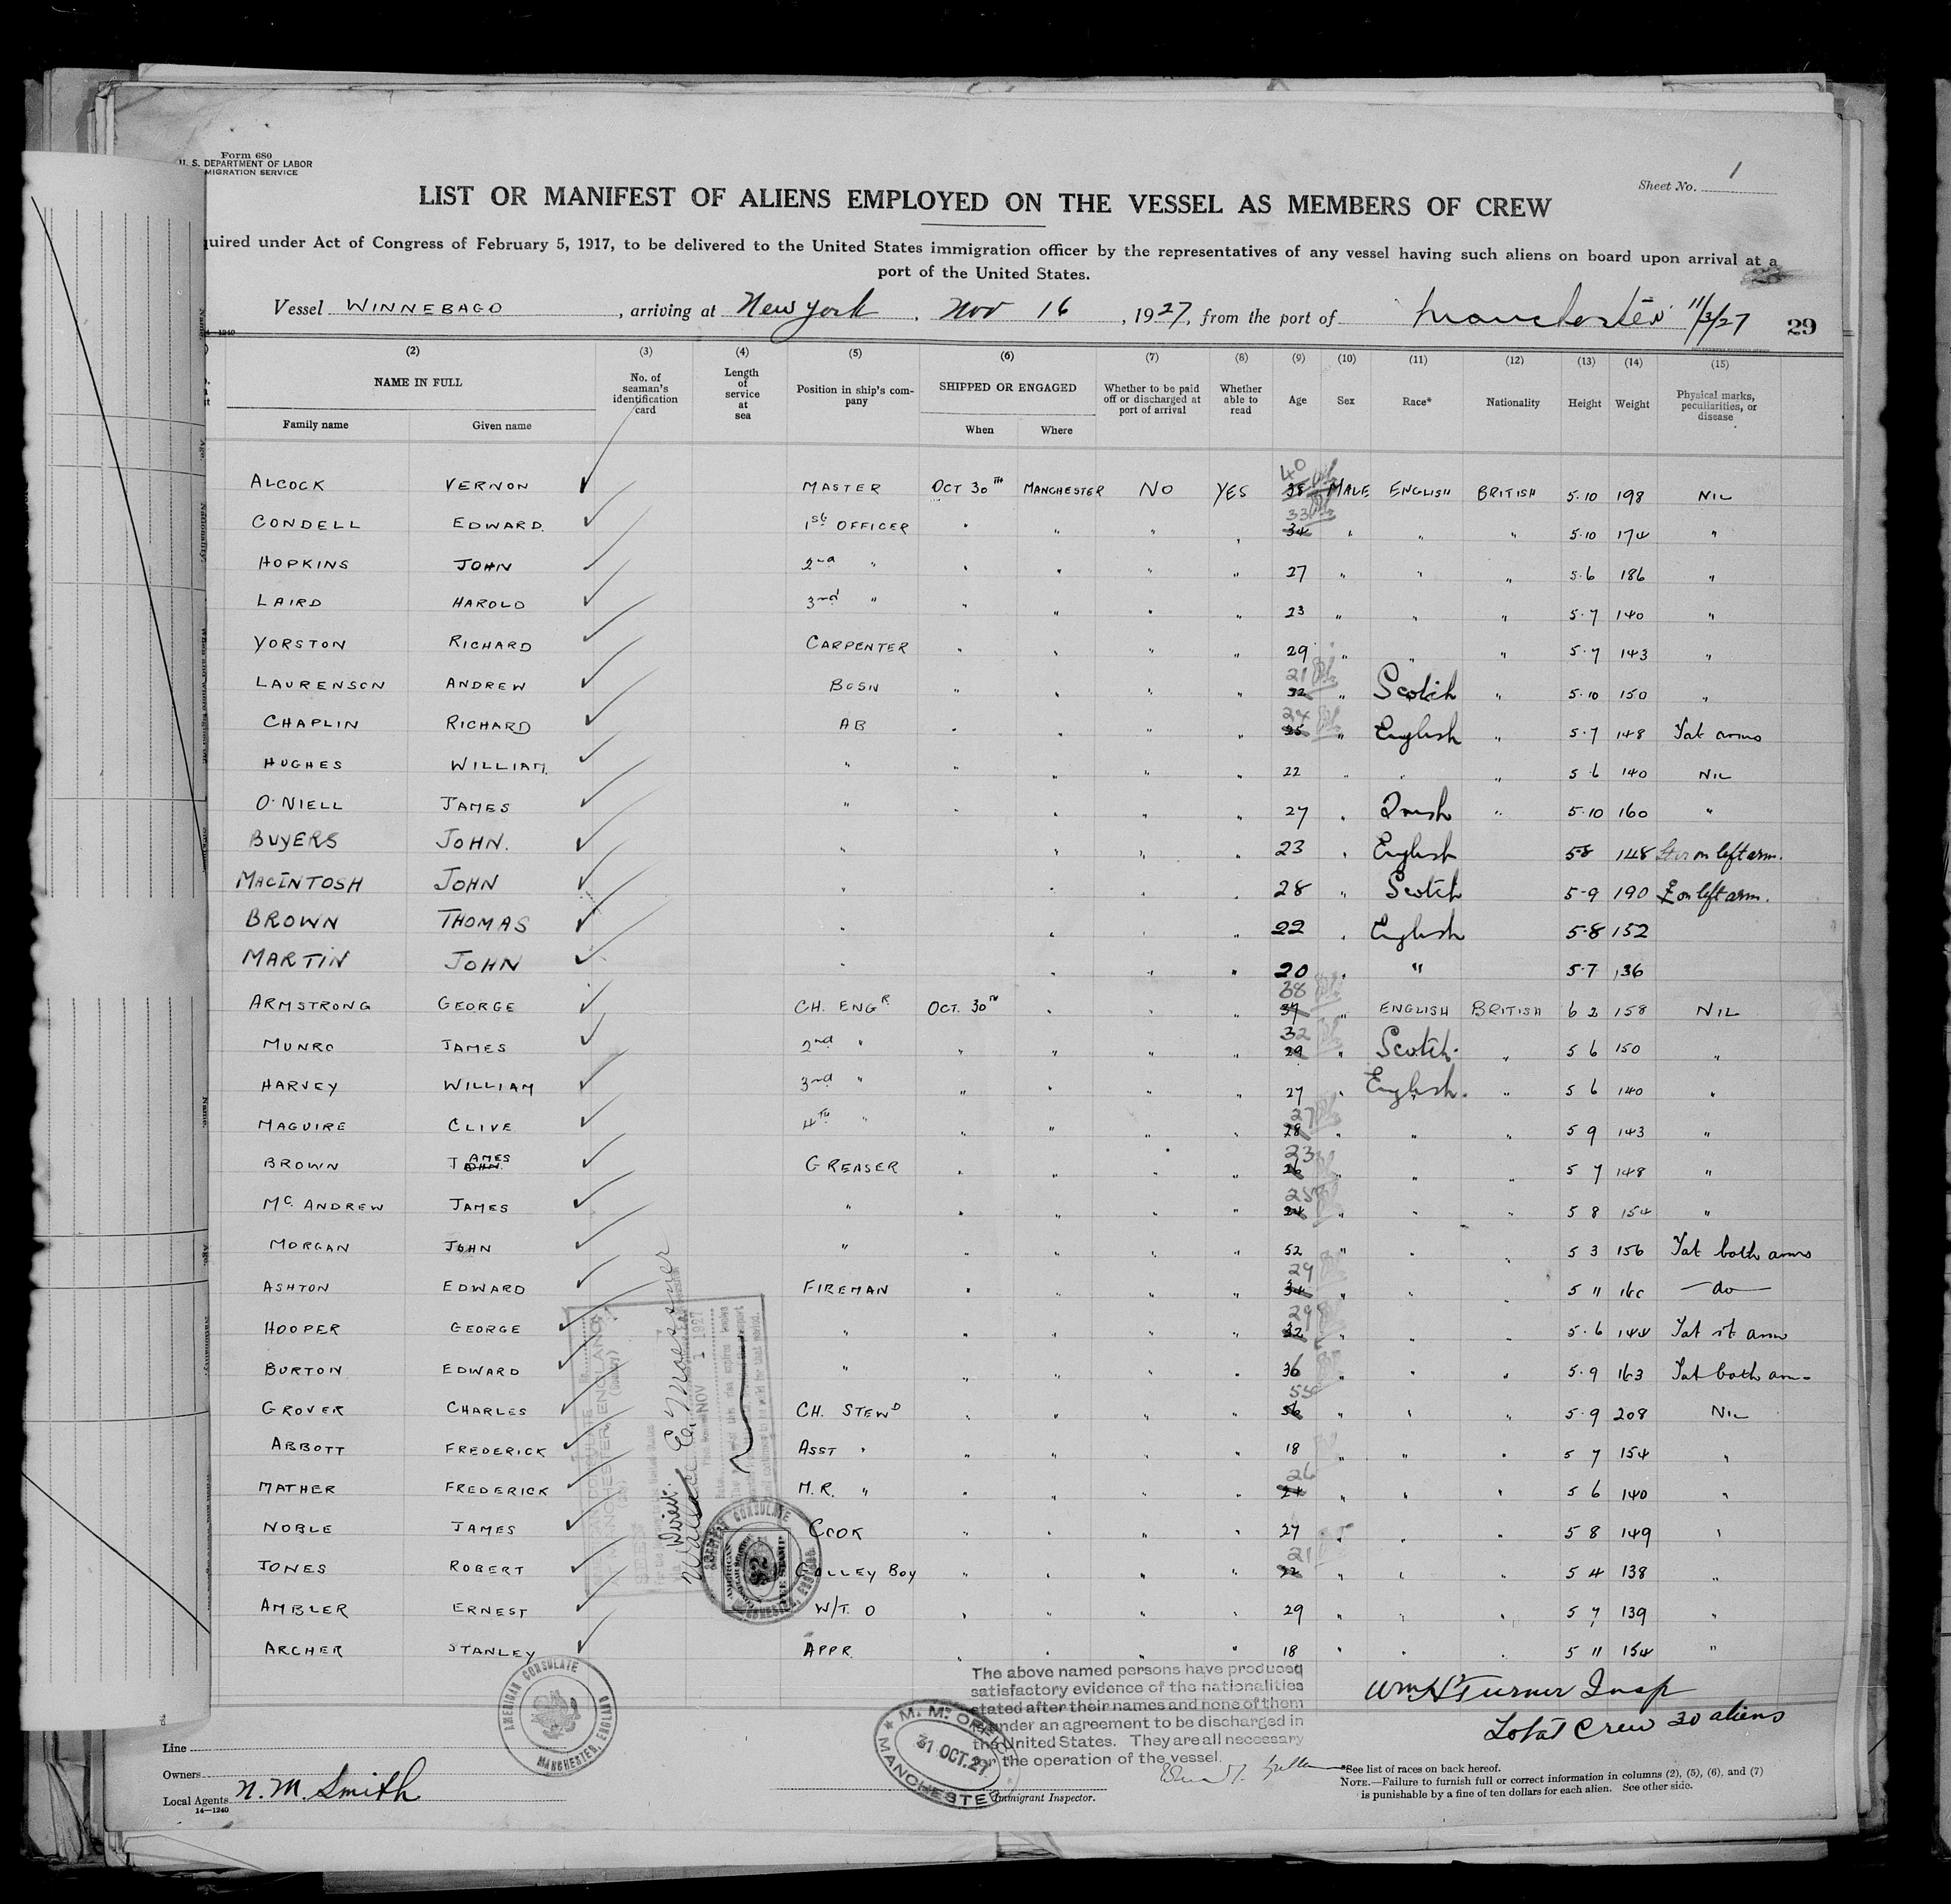 Form 680
U. S. DEPARTMENT OF LABOR
MIGRATION SERVICE
Sheet No. 1
LIST OR MANIFEST OF ALIENS EMPLOYED ON THE VESSEL AS MEMBERS OF CREW
quired under Act of Congress of February 5, 1917, to be delivered to the United States immigration officer by the representatives of any vessel having such aliens on board upon arrival at a
port of the United States.
Vessel WINNEBAGO, arriving at New York, Nov 16, 1927, from the port of Manchester 11/3/27 29
(2) (3) (4) (5) (6) (7) (8) (9) (10) (11) (12) (13) (14) (15)
NAME IN FULL No. of seaman's identification card Length of service at sea Position in ship's company SHIPPED OR ENGAGED Whether to be paid off or discharged at port of arrival Whether able to read Age Sex Race* Nationality Height Weight Physical marks, peculiarities, or disease
Family name Given name When Where
ALCOCK VERNON MASTER OCT 30TH MANCHESTER NO YES 40 38 MALE ENGLISH BRITISH 5.10 198 NIL
CONDELL EDWARD. 1st OFFICER " " " " 33 34 " " " 5.10 174 "
HOPKINS JOHN 2nd " " " " " 27 " " " 5.6 186 "
LAIRD HAROLD 3rd " " " " " 23 " " " 5.7 140 "
YORSTON RICHARD CARPENTER " " " " 29 " " " 5.7 143 "
LAURENSON ANDREW BOSN " " " " 21 32 " Scotch " 5.10 150 "
CHAPLIN RICHARD AB " " " " 24 25 " English " 5.7 148 Tat arms
HUGHES WILLIAM. " " " " " 22 " " " 5 6 140 NIL
O'NIELL JAMES " " " " " 27 " Irish " 5.10 160 "
BUYERS JOHN. " " " " 23 " English 58 148 on left arm.
MACINTOSH JOHN " " " " 28 " Scotch 5-9 190 on left arm.
BROWN THOMAS " " " 22 " English 5-8 152
MARTIN JOHN " " " " 20 " " 5-7 136
ARMSTRONG GEORGE CH. ENGR OCT. 30TH " " " 38 37 " ENGLISH BRITISH 6 2 158 NIL
MUNRO JAMES 2nd " " " " " 32 29 " Scotch. " 5 6 150 "
HARVEY WILLIAM 3rd " " " " " 27 " English. " 5 6 140 "
MAGUIRE CLIVE 4TH " " " " " 27 28 " " " 5 9 143 "
BROWN JAMES JOHN. GREASER " " " " 23 26 " " " 5 7 148 "
Mc ANDREW JAMES " " " " " 25 24 " " " 5 8 154 "
MORGAN JOHN " " " " " 52 " " " 5 3 156 Tat both arms
ASHTON EDWARD FIREMAN " " " " 29 34 " " " 5 11 160 — do —
HOOPER GEORGE " " " " " 29 32 " " " 5.6 144 Tat rt arm
BURTON EDWARD " " " " " 36 " " " 5.9 163 Tat both arm-
GROVER CHARLES CH. STEWD " " " " 55 56 " " " 5.9 208 NIL
ABBOTT FREDERICK ASST " " " " " 18 " " " 5 7 154 "
MATHER FREDERICK M.R. " " " " " 26 24 " " " 5 6 140 "
NOBLE JAMES COOK " " " " 27 " " " 5 8 149 "
JONES ROBERT GALLEY BOY " " " " 21 22 " " " 5 4 138 "
AMBLER ERNEST W/T. O " " " " 29 " " " 5 7 139 "
ARCHER STANLEY APPR. " " " " 18 " " " 5 11 154 "
AMERICAN CONSULATE MANCHESTER, ENGLAND
NOV 1 1927
AMERICAN CONSULATE MANCHESTER, ENGLAND
FEE STAMP
The above named persons have produced
satisfactory evidence of the nationalities
stated after their names and none of them
is under an agreement to be discharged in
the United States. They are all necessary
for the operation of the vessel.
M. M. OFFICE MANCHESTER 31 OCT. 27
Wm H Turner Insp
Total Crew 30 aliens
Line
Owners
Local Agents N. M. Smith
14—1240
Immigrant Inspector.
*See list of races on back hereof.
NOTE.—Failure to furnish full or correct information in columns (2), (5), (6), and (7)
is punishable by a fine of ten dollars for each alien. See other side.